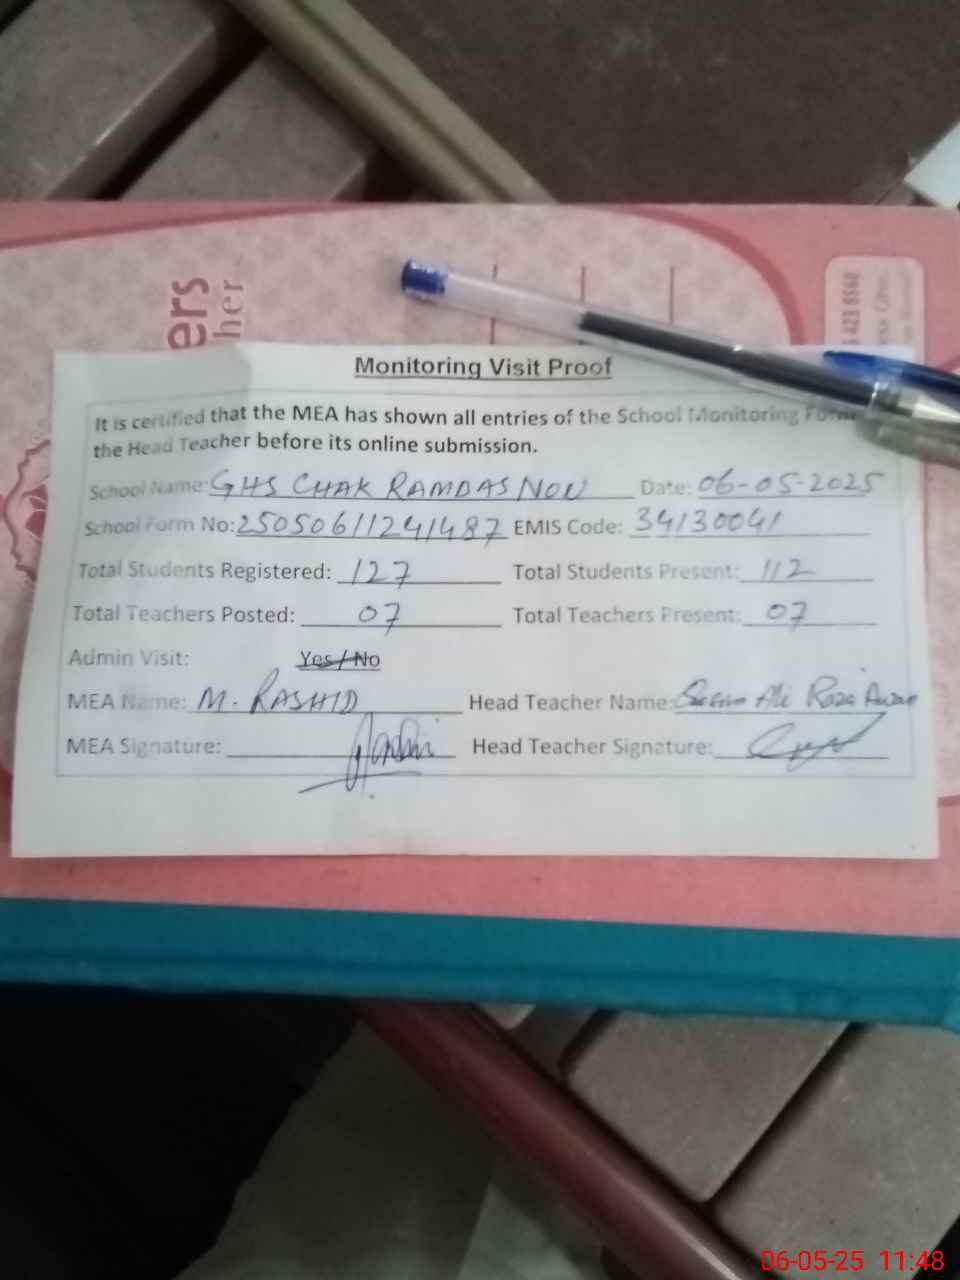 ers
her
423 8560
Monitoring Visit Proof
It is certified that the MEA has shown all entries of the School Monitoring Form
the Head Teacher before its online submission.
School Name: GHS CHAK RAMDAS NOU Date: 06-05-2025
School Form No: 25050611241487 EMIS Code: 34130041
Total Students Registered: 127 Total Students Present: 112
Total Teachers Posted: 07 Total Teachers Present: 07
Admin Visit: Yes / No
MEA Name: M. RASHID Head Teacher Name: Ali Raza Awan
MEA Signature: Head Teacher Signature:
06-05-25 11:48